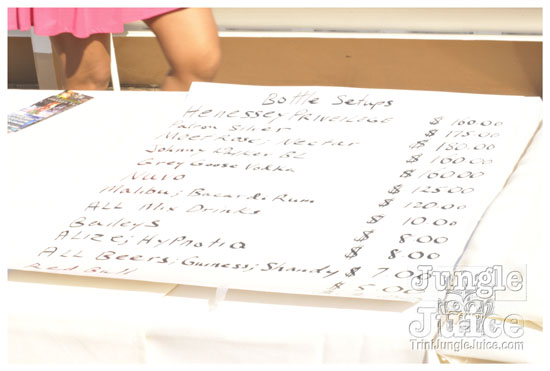 Bottle Setups
Henessey Priveledge $ 160.00
Patron Silver $ 175.00
Moet Rose; Nectar $ 180.00
Johnny Walker BL $ 160.00
Grey Goose Vodka $ 160.00
Nuvo $ 125.00
Malibu; Bacardi Rum $ 120.00
ALL Mix Drinks $ 10.00
Baileys $ 8.00
ALIZE; HYPNOTIQ $ 8.00
ALL BEERS; Guiness; Shandy $ 7.00
Red Bull $ 5.00
Jungle
Juice
TriniJungleJuice.com